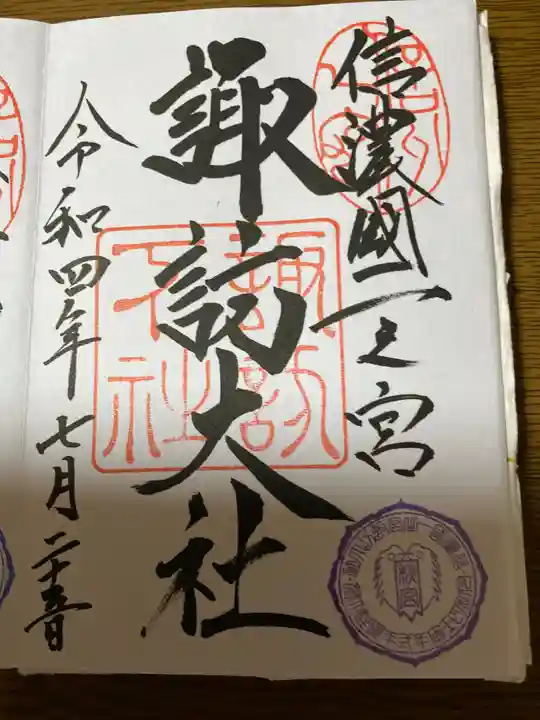 信濃國一之宮
諏訪大社
令和四年七月二十五日
諏訪
下社
秋宮